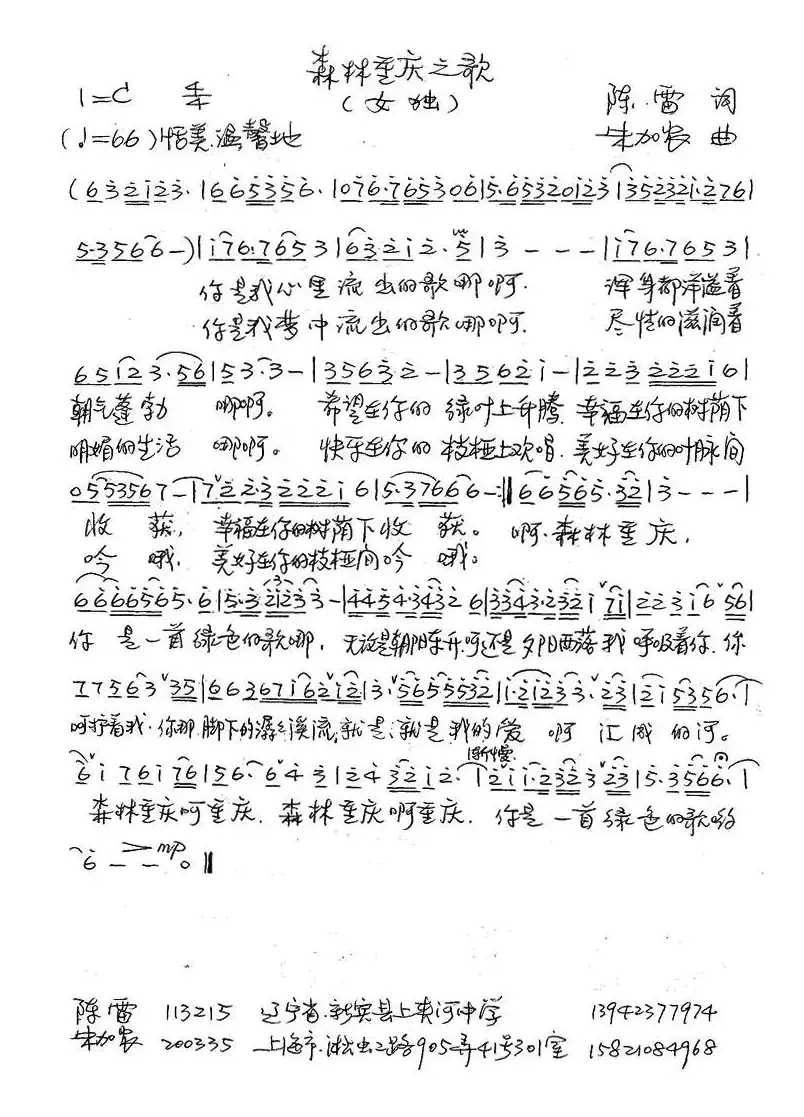 森林重庆之歌
1=C
(女独)
陈 雷 词
(♩=66) 恬美.温馨地
朱加农 曲
(6 3 2 1 2 3. | 6 6 5 3 5 6. | 0 7 6. 7 6 5 3 0 6 | 5. 6 5 3 2 0 1 2 3 | 3 5 2 3 2 1. 2 7 6 |
5. 3 5 6 6 —) | i 7 6. 7 6 5 3 | 6 3. 2 1 2. 5 | 3 - - - | i 7 6. 7 6 5 3 |
你是我心里流出的歌哪啊. 浑身都洋溢着
你是我梦中流出的歌哪啊. 尽情的滋润着
6 5 i 2 3. 5 6 | 5 3. 3 - | 3 5 6 3 2 - | 3 5 6 2 i - | 2 2 3 2 2 2 i 6 |
朝气蓬勃 哪啊。 希望在你的绿叶上升腾 幸福在你的树荫下
明媚的生活 哪啊。 快乐在你的枝桠上欢唱. 美好在你的叶脉间
0 5 5 3 5 6 7 - | 7 2 2. 3 2 2 2 i 6 | 5. 3 7 6 6 6 -:‖ 6 6 5 6 5. 3 2 | 3 - - - |
收 获, 幸福在你的树荫下收 获。 啊.森林重庆,
吟 哦, 美好在你的枝桠间吟 哦。
6 6 6 6 5 6 5. 6 | 5. 3 2 1 2 3 3 - | 4 4 5 4. 3 4 3 2 6 | 3 3 4 3. 2 3 2 i 7 i | 2 2 3 i 6 5 6 |
你 是一首绿色的歌哪, 无论是朝阳东升呵还是夕阳西落我呼吸着你. 你
7 7 5 6 3 3 5 | 6 6 3 6 7 i 6 2 i 2 | 3. 5 6 5 5 5 3 2 | i. 2 i 2 3 3. 2 3 | 2 i 5 3 5 6. |
呵护着我.你那脚下的潺潺溪流,就是.就是我的爱 啊 汇成的河。
渐慢.
6 i 7 6 i 7 6 | 5 6. 6 4 3 | 2 4 3 2 i 2. | 2 i i. 2 3 2 3 2 3 | 5. 3 5 6 6. |
森林重庆呵重庆. 森林重庆啊重庆. 你是一首绿色的歌哟
6 - - 0 ‖
mp
陈雷 113215 辽宁省.新宾县上夹河中学 13942377974
朱加农 200335 上海市.淞虹路905弄41号301室 15821084968